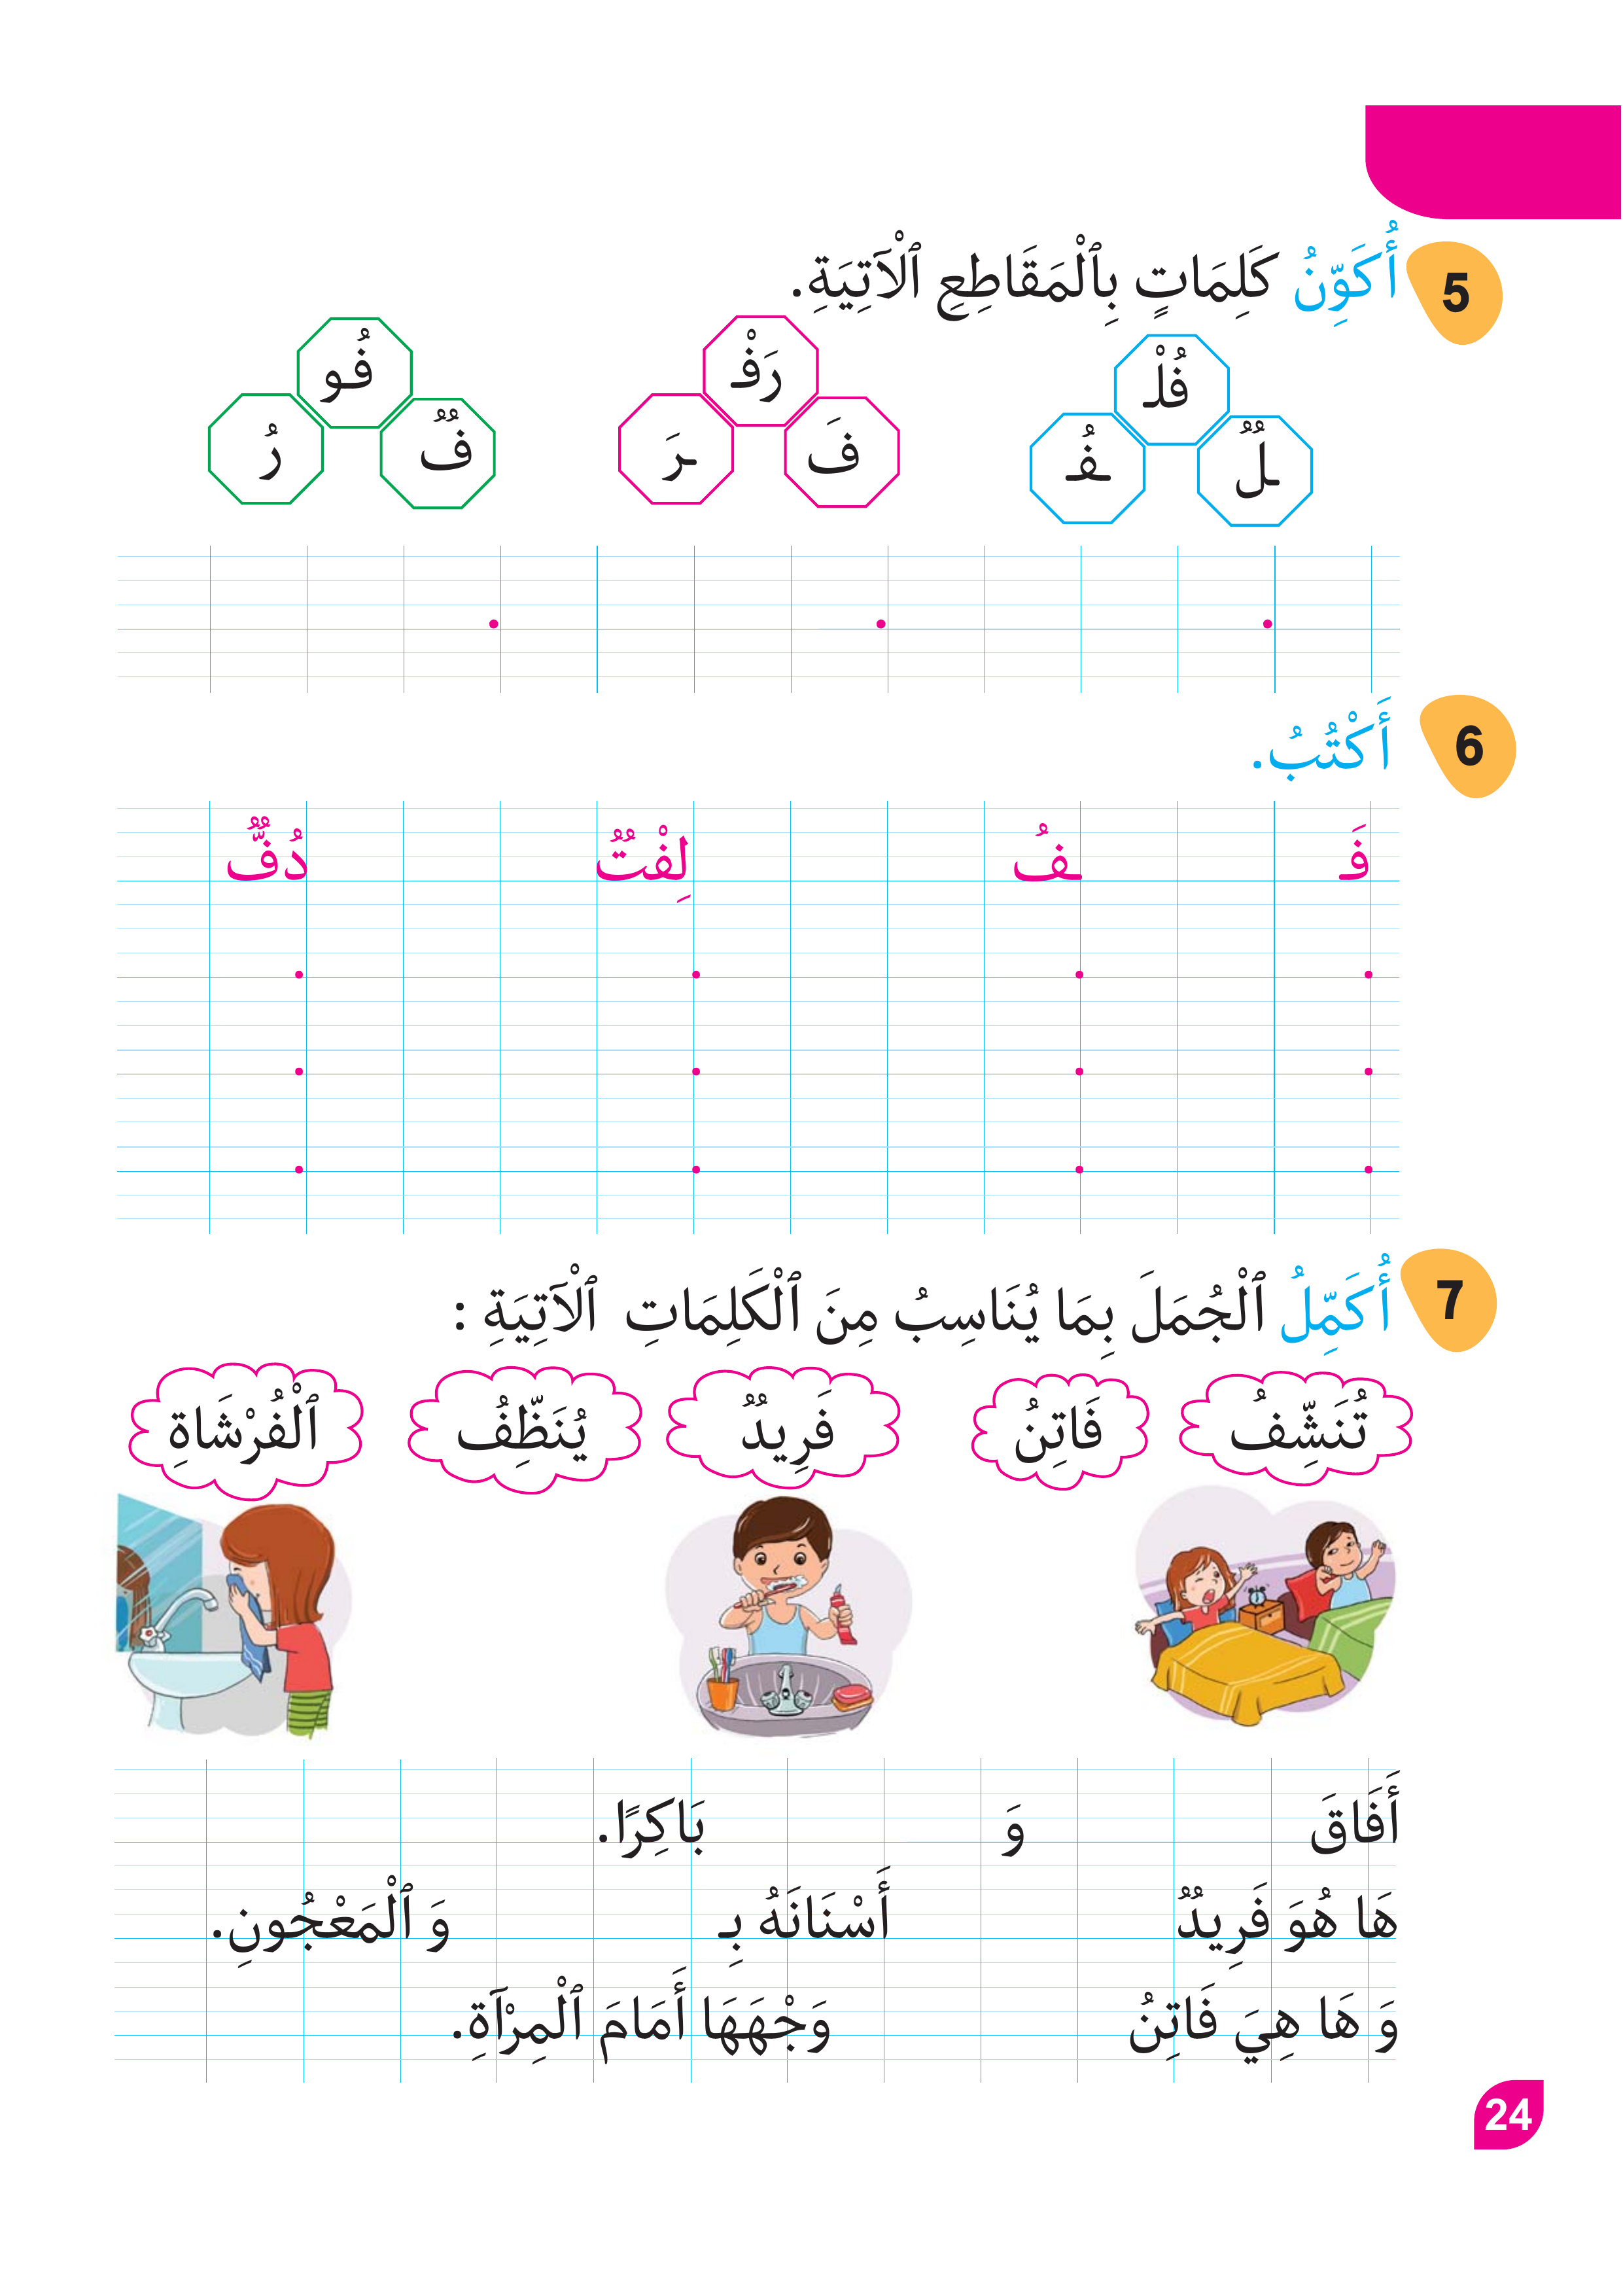 5 أُكَوِّنُ كَلِمَاتٍ بِٱلْمَقَاطِعِ ٱلْآتِيَةِ.
فُلْـ رَفْـ فُو
ـلٌ ـفُـ فَ ـرَ فٌ رُ
6 أَكْتُبُ.
فَـ ـفُ لِفْتٌ دُفٌّ
7 أُكَمِّلُ ٱلْجُمَلَ بِمَا يُنَاسِبُ مِنَ ٱلْكَلِمَاتِ ٱلْآتِيَةِ :
تُنَشِّفُ فَاتِنُ فَرِيدٌ يُنَظِّفُ ٱلْفُرْشَاةِ
أَفَاقَ وَ بَاكِرًا.
هَا هُوَ فَرِيدٌ أَسْنَانَهُ بِـ وَ ٱلْمَعْجُونِ.
وَ هَا هِيَ فَاتِنُ وَجْهَهَا أَمَامَ ٱلْمِرْآةِ.
24